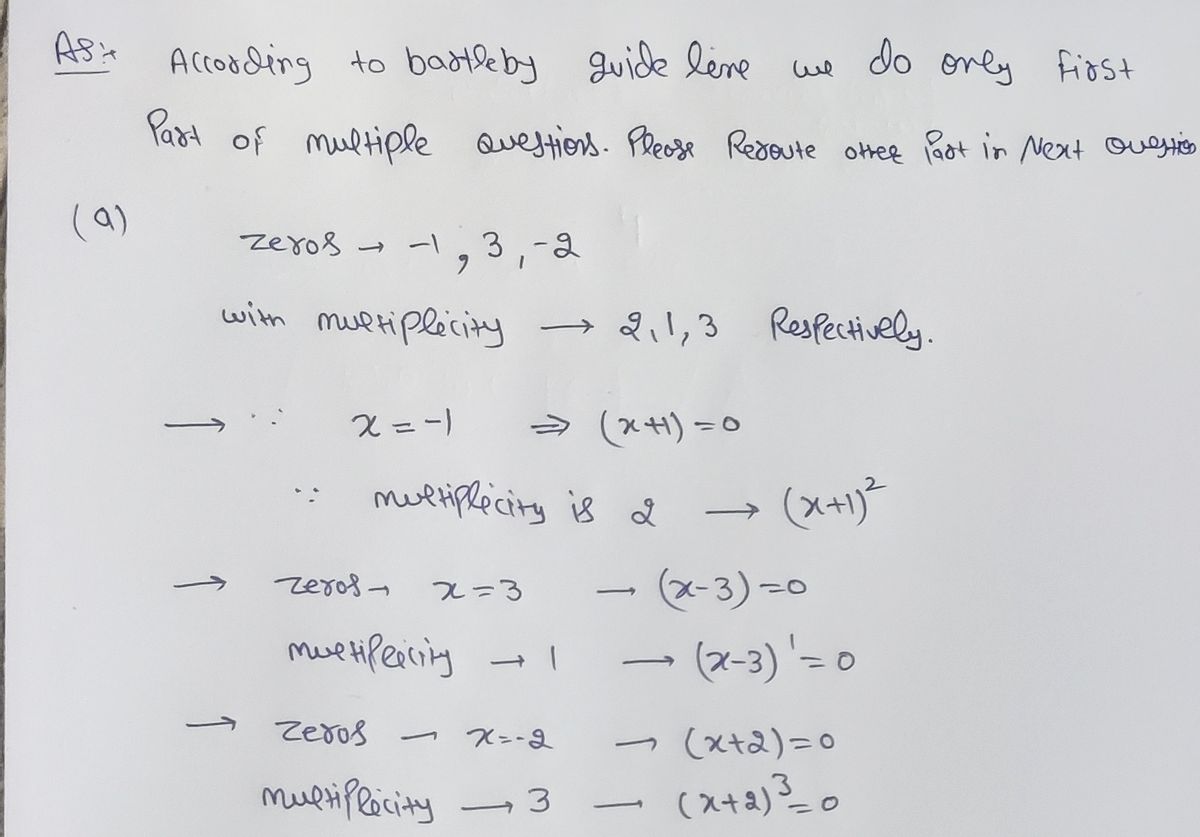 AS:→ According to bartleby guide line we do only first
Part of multiple questions. Please Reroute other Part in Next Question
(a)
zeros → -1, 3, -2
with multiplicity → 2, 1, 3 Respectively.
→ ∵ x = -1 ⇒ (x+1) = 0
∵ multiplicity is 2 → (x+1)²
→ zeros → x = 3 → (x-3) = 0
multiplicity → 1 → (x-3)¹ = 0
→ zeros → x = -2 → (x+2) = 0
multiplicity → 3 → (x+2)³ = 0